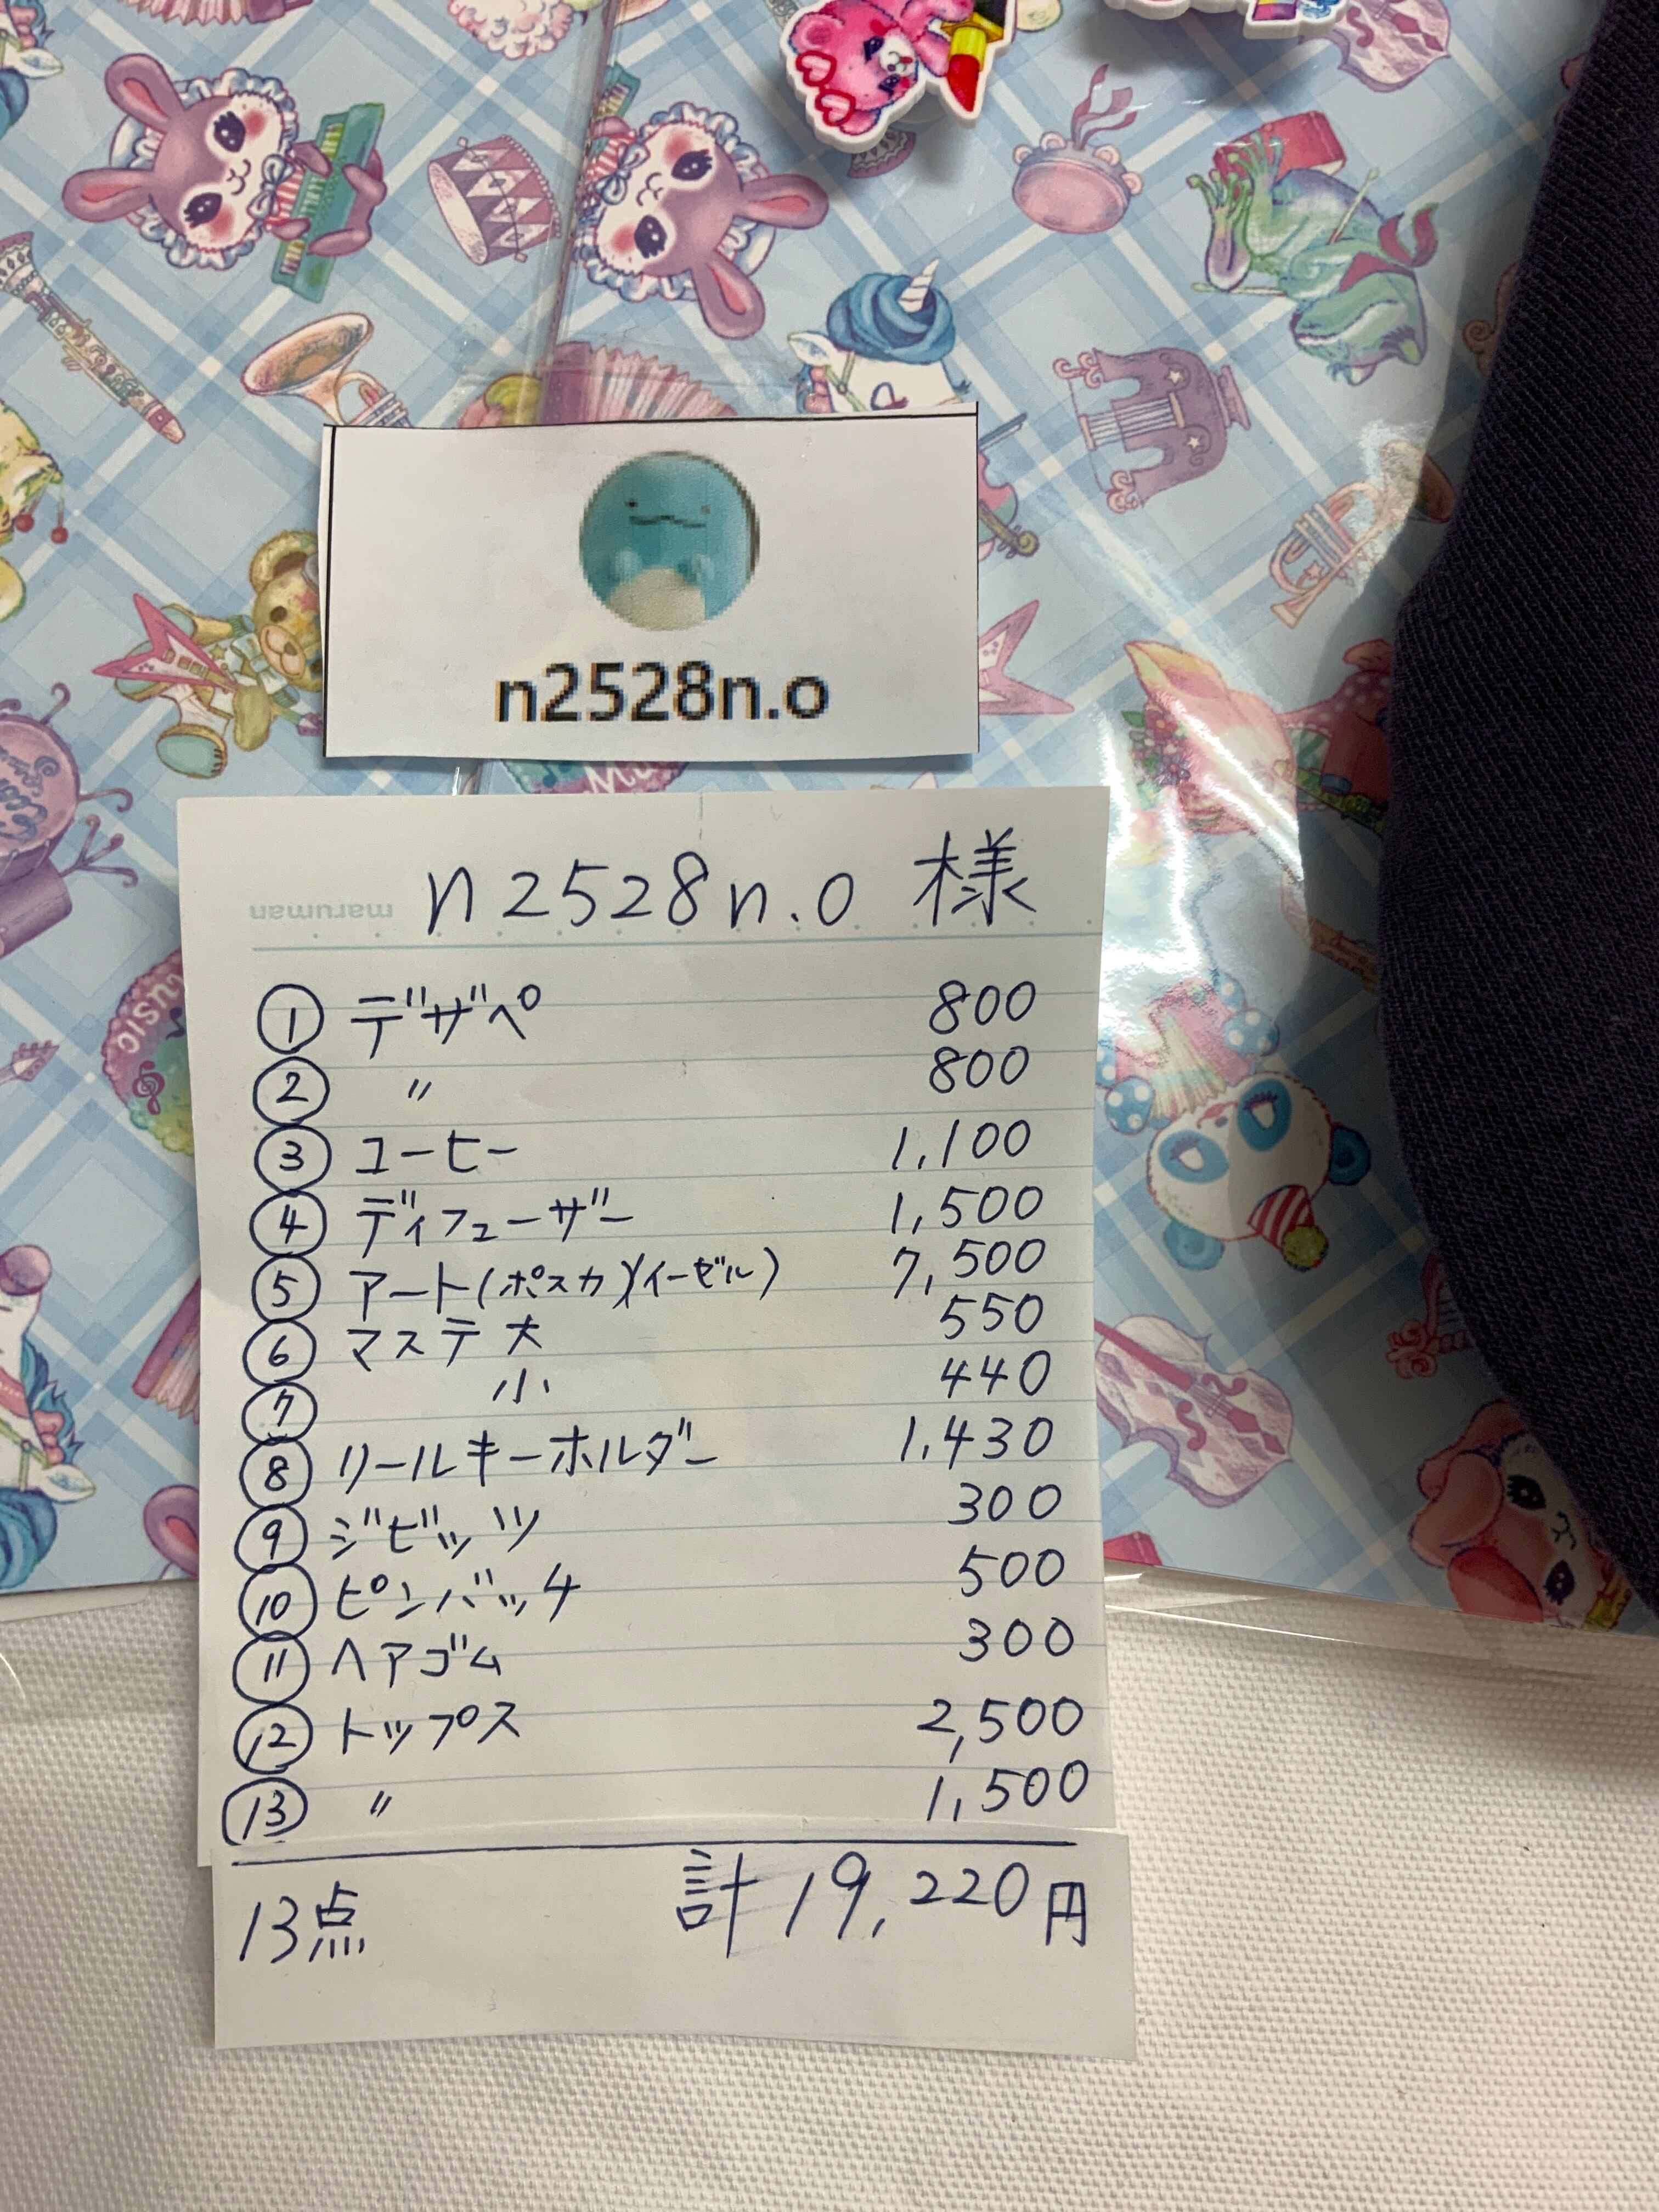 n2528n.o
maruman
n2528n.o 様
① デザペ 800
② 〃 800
③ コーヒー 1,100
④ ディフューザー 1,500
⑤ アート(ポスカ)(イーゼル) 7,500
⑥ マステ 大 550
⑦ 小 440
⑧ リールキーホルダー 1,430
⑨ ジビッツ 300
⑩ ピンバッチ 500
⑪ ヘアゴム 300
⑫ トップス 2,500
⑬ 〃 1,500
13点 計 19,220円